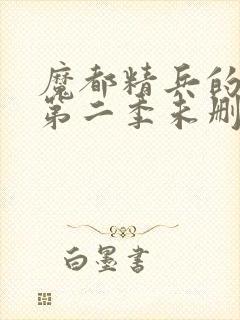 魔都精兵的
第二季未删
白墨書